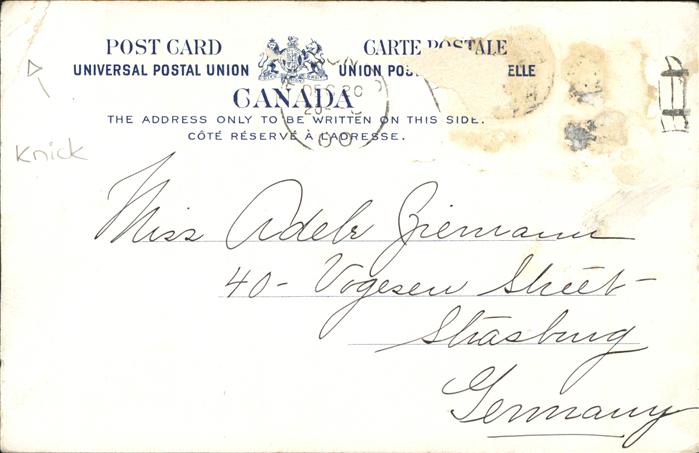 POST CARD CARTE POSTALE
UNIVERSAL POSTAL UNION UNION POS ELLE
CANADA
THE ADDRESS ONLY TO BE WRITTEN ON THIS SIDE.
CÔTÉ RÉSERVÉ À L'ADRESSE.
Knick
Miss Adele Ziemann
40 - Vogesen Street -
Strasburg
Germany